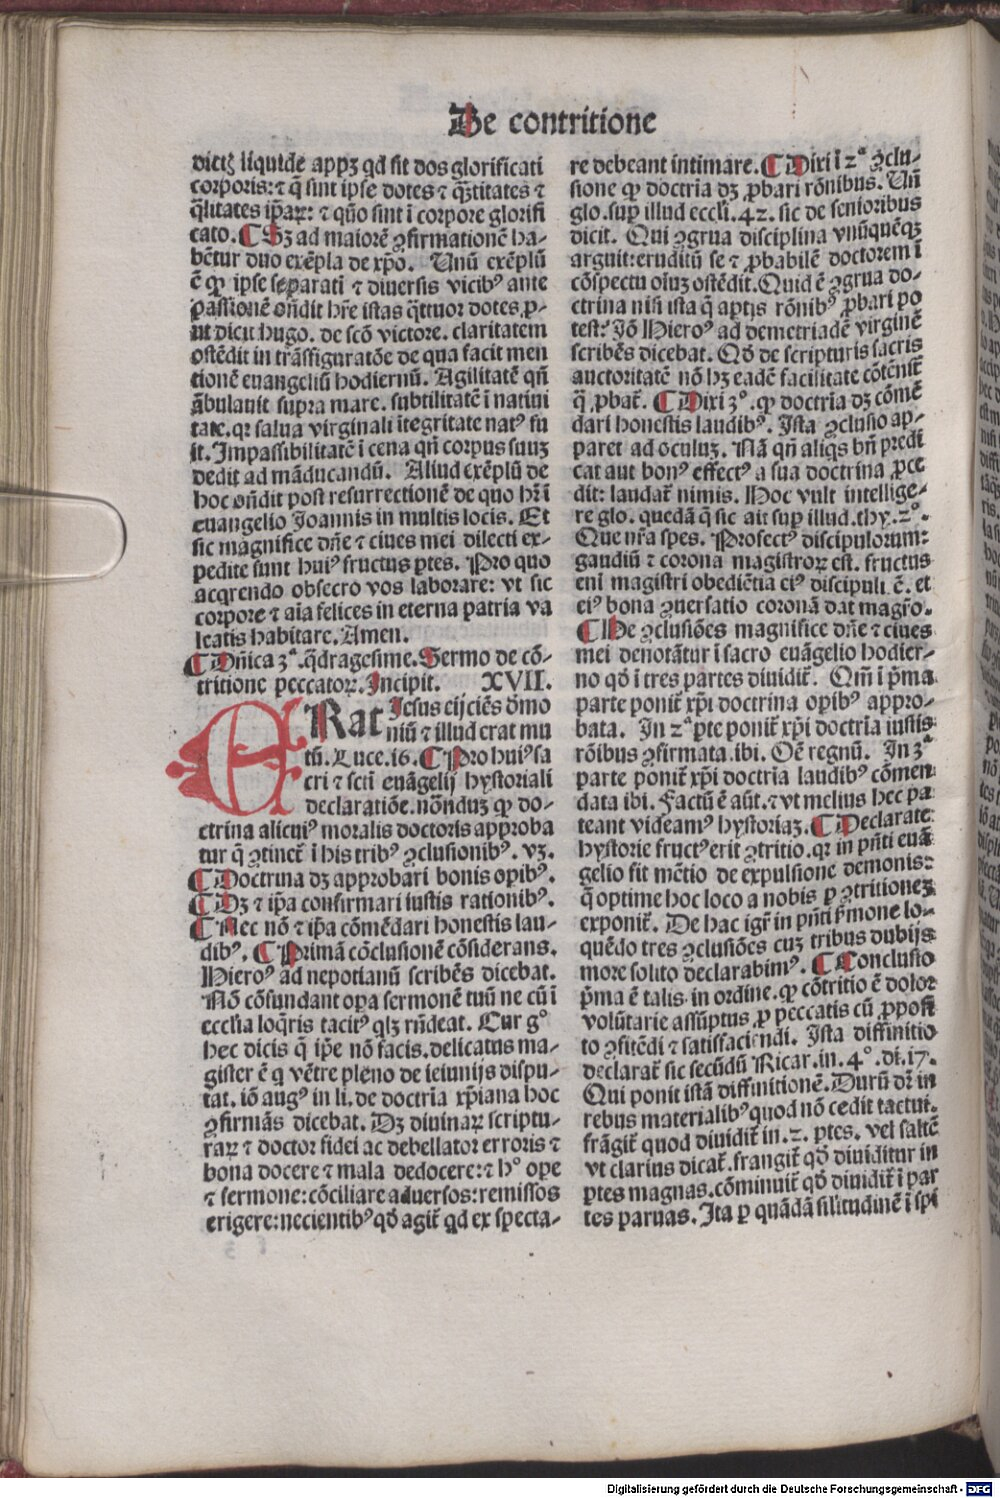 De contritione
dictꝫ liquide appꝫ qd sit dos glorificati
corporis: ⁊ q̄ sint ipse dotes ⁊ q̄ꝫtitates ⁊
q̄litates ip̄aꝝ: ⁊ quō sint ī corpore glorifi
cato. ¶ Sꝫ ad maiorē ꝯfirmationē ha-
bētur duo exēpla de xp̄o. Unū exēplū
ē ꝙ ipse separati ⁊ diuersis vicibꝰ ante
passionē on̄dit hr̄e istas q̄ttuor dotes, ꝓ-
ut dicit hugo. de scō victore. claritatem
ostēdit in trāsfiguratōe de qua facit men
tionē euangeliū hodiernū. Agilitatē qn̄
ābulauit supra mare. subtilitatē ī natiui
tate. qꝛ salua virginali ītegritate natꝰ fu
it. Impassibilitatē ī cena qn̄ corpus suuꝫ
dedit ad māducandū. Aliud exēplū de
hoc on̄dit post resurrectionē de quo hr̄ ī
euangelio Joannis in multis locis. Et
sic magnifice dn̄e ⁊ ciues mei dilecti ex-
pedite sunt huiꝰ fructus ꝑtes. Pro quo
acqrendo obsecro vos laborare: vt sic
corpore ⁊ aīa felices in eterna patria va
leatis habitare. Amen.
¶ Dn̄ica 3ᵃ. q̄dragesime. Sermo de cō-
tritione peccatoꝝ. Incipit. XVII.
ERat Jesus eijciēs dmō
niū ⁊ illud erat mu
tū. Luce. 16. ¶ Pro huiꝰ sa
cri ⁊ scti euāgelij hystoriali
declaratiōe. nōnduꝫ ꝙ do-
ctrina alicuiꝰ moralis doctoris approba
tur q̄ ꝯtinet̄ ī his tribꝰ ꝯclusionibꝰ. vꝫ.
¶ Doctrina dꝫ approbari bonis oꝑibꝰ.
¶ Dꝫ ⁊ ip̄a confirmari iustis rationibꝰ.
¶ Nec nō ⁊ ip̄a cōmēdari honestis lau-
dibꝰ. ¶ Primā cōclusionē cōsiderans.
Hieroꝰ ad nepotianū scribēs dicebat.
Nō cōfundant oꝑa sermonē tuū ne cū ī
ecclīa loq̄ris tacitꝰ qlꝫ rn̄deat. Cur gº
hec dicis q̄ ip̄e nō facis. delicatus ma-
gister ē q vētre pleno de ieiunijs dispu-
tat. iō augꝰ in li. de doctria xp̄iana hoc
ꝯfirmās dicebat. Dꝫ diuinaꝝ scriptu-
raꝝ ⁊ doctor fidei ac debellator erroris ⁊
bona docere ⁊ mala dedocere: ⁊ hº oꝑe
⁊ sermone: cōciliare aduersos: remissos
erigere: necientibꝰ qd̄ agit̄ qd expecta-
re debeant intimare. ¶ Dixi ī 2ᵃ ꝯclu-
sione ꝙ doctria dꝫ ꝓbari rōnibus. Un̄
glo. suꝑ illud eccl̄i. 42. sic de senioribus
dicit. Qui ꝯgrua disciplina vnūquēqꝫ
arguit: eruditū se ⁊ ꝓbabilē doctorem ī
cōspectu oīuꝫ ostēdit. Quid ē ꝯgrua do-
ctrina nisi ista q̄ aptis rōnibꝰ ꝓbari po
test: Iō Hieroꝰ ad demetriadē virginē
scribēs dicebat. Qd̄ de scripturis sacris
auctoritatē nō hꝫ eadē facilitate cōtēnit̄
q̄ ꝓbat̄. ¶ Dixi 3º. ꝙ doctria dꝫ cōmē
dari honestis laudibꝰ. Ista ꝯclusio ap-
paret ad oculuꝫ. Nā qn̄ aliqs bn̄ predi
cat aut bonꝰ effectꝰ a sua doctrina ꝓce
dit: laudat̄ nimis. Hoc vult intellige-
re glo. quedā q̄ sic ait suꝑ illud. thy. 2º.
Que nr̄a spes. Profectꝰ discipulorum:
gaudiū ⁊ corona magistroꝝ est. fructus
enī magistri obediētia eiꝰ discipuli ē. et
eiꝰ bona ꝯuersatio coronā dat magr̄o.
¶ He ꝯclusiōes magnifice dn̄e ⁊ ciues
mei denotātur ī sacro euāgelio hodier-
no qd̄ ī tres partes diuidit̄. Qm̄ ī p̄ma
parte ponit̄ xp̄i doctrina oꝑibꝰ appro-
bata. In 2ᵃ ꝑte ponit̄ xp̄i doctria iustis
rōibus ꝯfirmata. ibi. Oē regnū. In 3ᵃ
parte ponit̄ xp̄i doctria laudibꝰ cōmen
data ibi. Factū ē aūt. ⁊ vt melius hec pa
teant videamꝰ hystoriaꝫ. ¶ Declarate
hystorie fructꝰ erit ꝯtritio. qꝛ in pn̄ti euā
gelio fit mētio de expulsione demonis:
q̄ optime hoc loco a nobis ꝑ ꝯtritioneꝫ
exponit̄. De hac igr̄ in pn̄ti s̄mone lo-
quēdo tres ꝯclusiōes cuꝫ tribus dubijs
more solito declarabimꝰ. ¶ Conclusio
p̄ma ē talis in ordine. ꝙ cōtritio ē dolor
volūtarie assūptus ꝓ peccatis cū ꝓposi
to ꝯfitēdi ⁊ satisfaciendi. Ista diffinitio
declarat̄ sic secūdū Ricar. in. 4º. di. 17.
Qui ponit istā diffinitionē. Durū dr̄ in
rebus materialibꝰ quod nō cedit tactui.
frāgit̄ quod diuidit̄ in. 2. ꝑtes. vel saltē
vt clarius dicat̄. frangit̄ qd̄ diuiditur in
ꝑtes magnas. cōminuit̄ qd̄ diuidit̄ ī par
tes paruas. Ita ꝑ quādā silitudinē ī spi
Digitalisierung gefördert durch die Deutsche Forschungsgemeinschaft - DFG